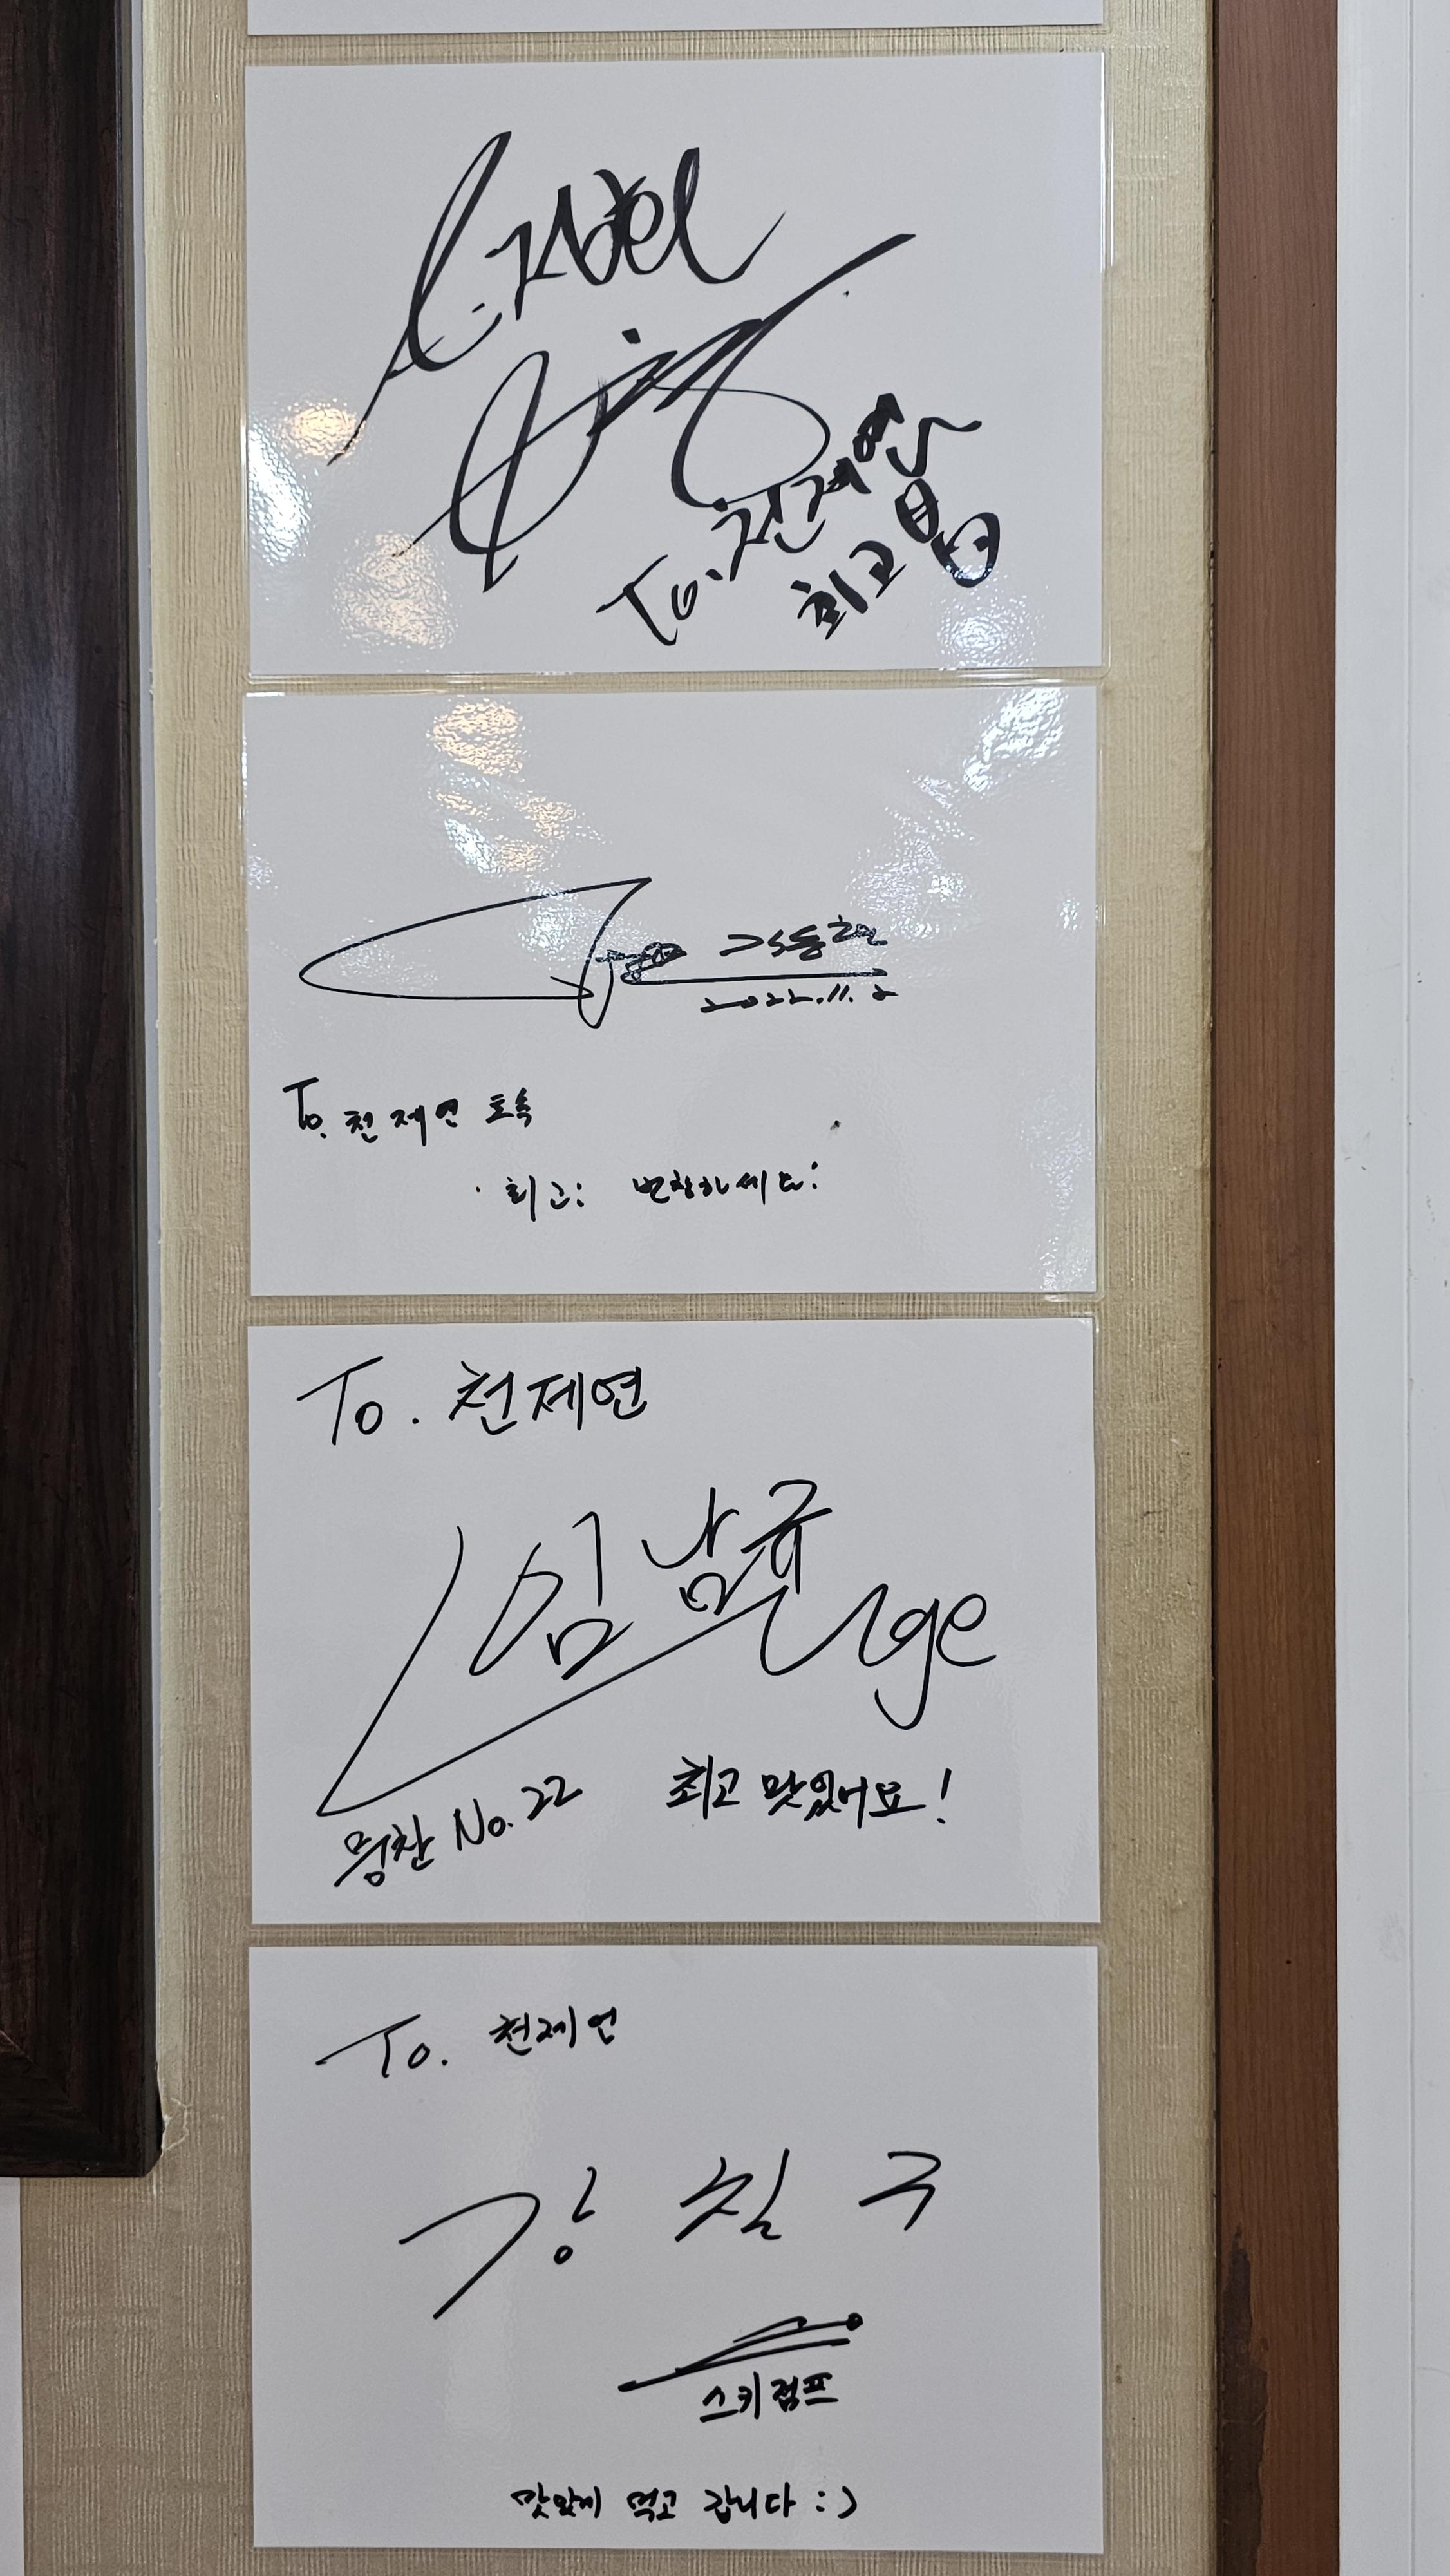 To. 천제연
최고
2022.11.2
To. 천제연 토속
최고! 번창하세요!
To. 천제연
임남규
Luge
뭉찬 No.22 최고 맛있어요!
To. 천제연
강칠구
스키점프
맛있게 먹고 갑니다 :)